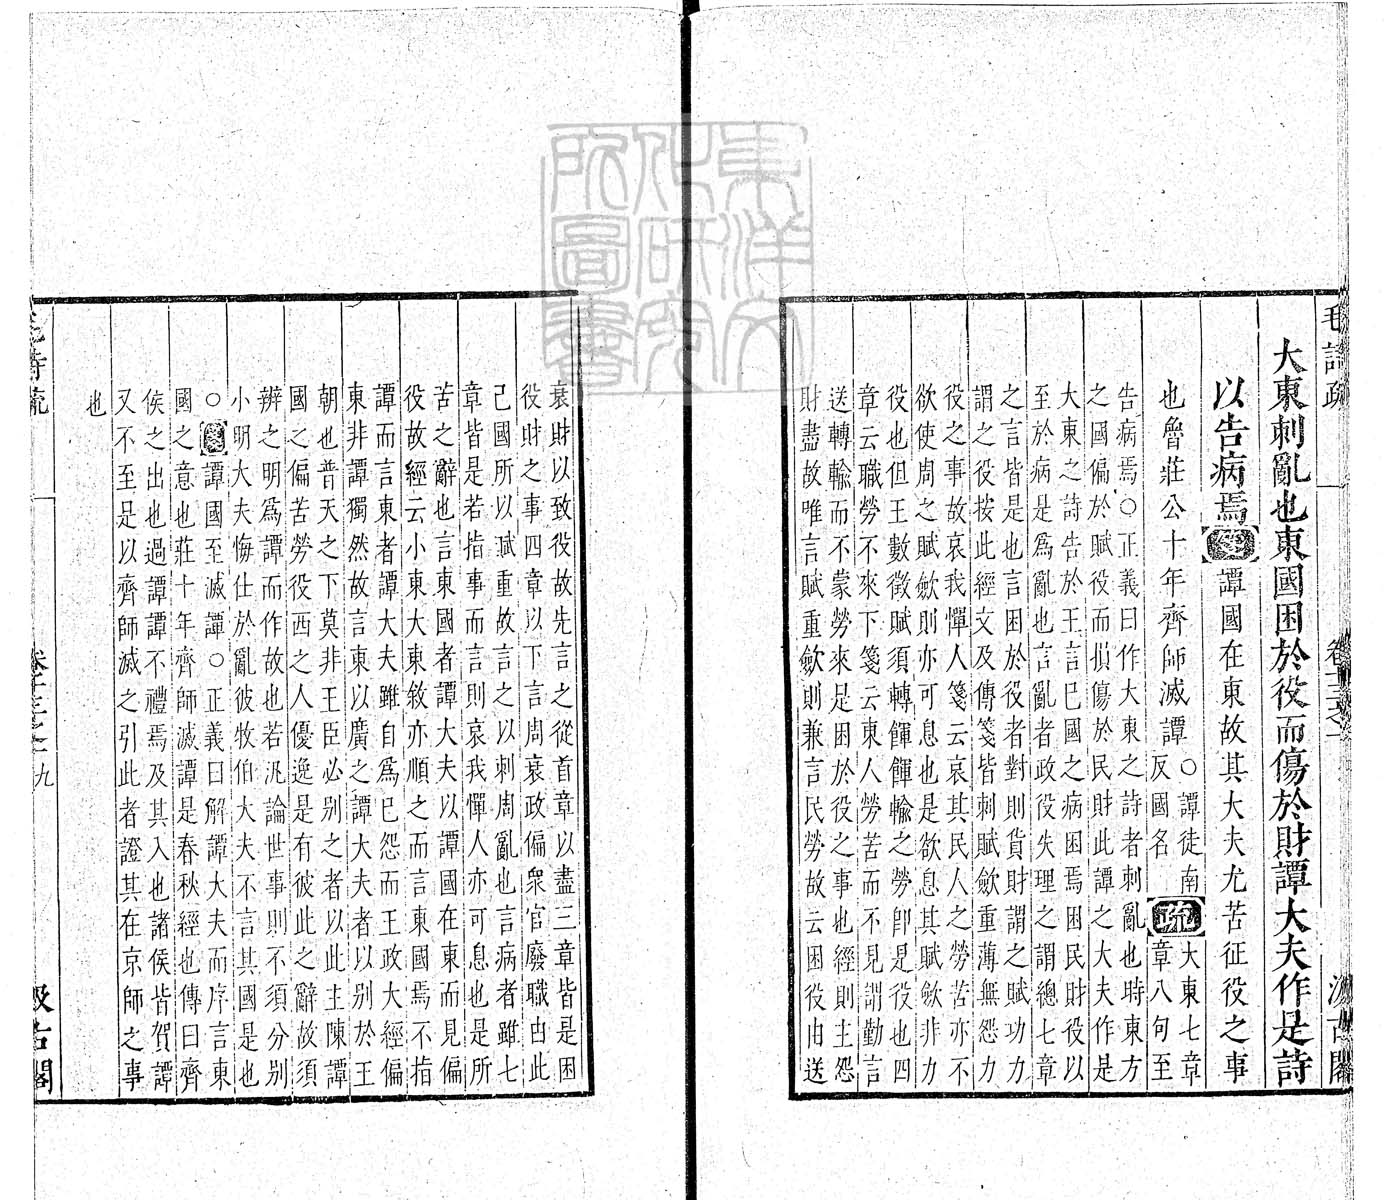 毛詩疏
卷十三之一
汲古閣
大東刺亂也東國困於役而傷於財譚大夫作是詩
以告病焉箋譚國在東故其大夫尤苦征役之事
也魯莊公十年齊師滅譚
○譚徒南
反國名
疏
大東七章
章八句至
告病焉○正義曰作大東之詩者刺亂也時東方
之國偏於賦役而損傷於民財此譚之大夫作是
大東之詩告於王言已國之病困焉困民財役以
至於病是為亂也言亂者政役失理之謂總七章
之言皆是也言困於役者對則貨財謂之賦功力
謂之役按此經文及傳箋皆刺賦斂重薄無怨力
役之事故哀我憚人箋云哀其民人之勞苦亦不
欲使周之賦斂則亦可息也是欲息其賦斂非力
役也但王數徵賦須轉餫餫輸之勞卽是役也四
章云職勞不來下箋云東人勞苦而不見謂勤言
送轉輸而不蒙勞來是困於役之事也經則主怨
財盡故唯言賦重斂則兼言民勞故云困役由送
衰財以致役故先言之從首章以盡三章皆是困
役財之事四章以下言周衰政偏衆官廢職由此
己國所以賦重故言之以刺周亂也言病者雖七
章皆是若指事而言則哀我憚人亦可息也是所
苦之辭也言東國者譚大夫以譚國在東而見偏
役故經云小東大東敘亦順之而言東國焉不指
譚而言東者譚大夫雖自為已怨而王政大經偏
東非譚獨然故言東以廣之譚大夫者以别於王
朝也普天之下莫非王臣必别之者以此主陳譚
國之偏苦勞役西之人優逸是有彼此之辭故須
辨之明為譚而作故也若汎論世事則不須分别
小明大夫悔仕於亂彼牧伯大夫不言其國是也
○箋譚國至滅譚○正義曰解譚大夫而序言東
國之意也莊十年齊師滅譚是春秋經也傳曰齊
侯之出也過譚譚不禮焉及其入也諸侯皆賀譚
又不至是以齊師滅之引此者證其在京師之事
也
毛詩疏
九
汲古閣
東洋文
化研究
所圖書